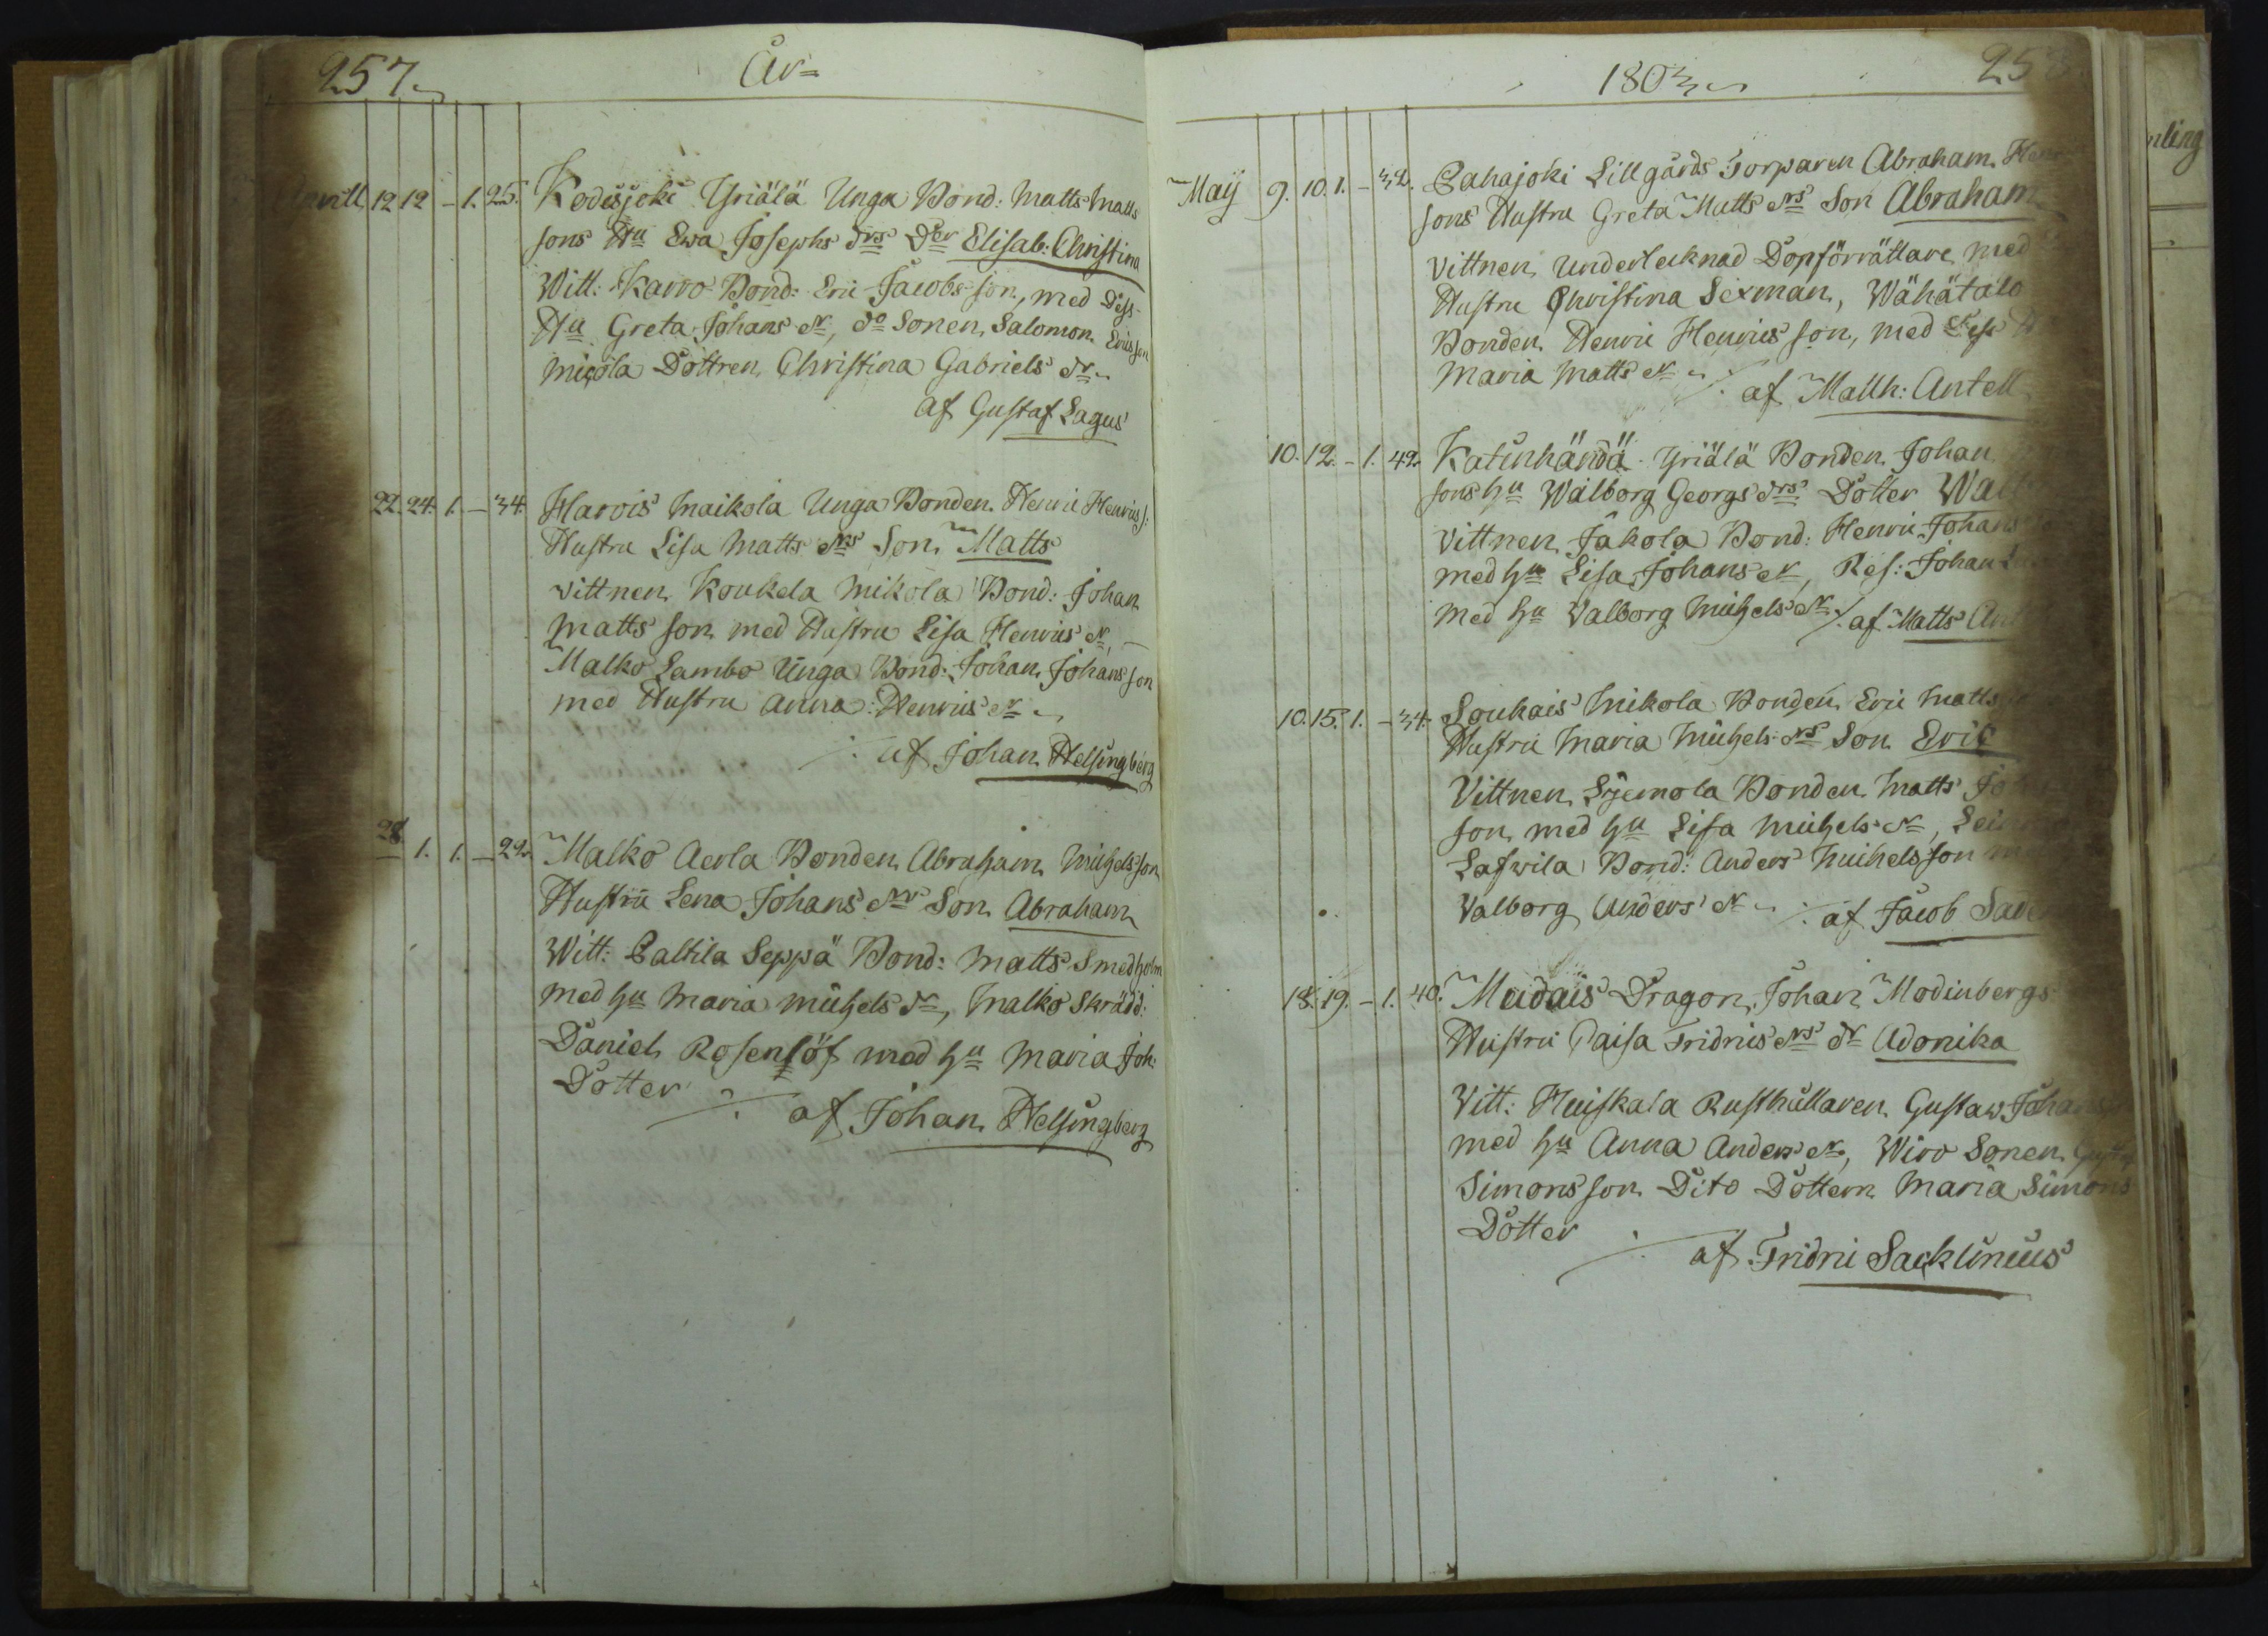 257
År
Aprill 12 12 - 1. 25. Kodisjoki Yriälä Unga Bond: Matts Matts
sons Hu Ewa Josephs drs Dr Elisab: Christina
Witt: Karvo Bond: Eric Jacobs son, med Dess
Hu Greta Johans dr, do Sonen Salomon Ericsson
Micola Dottren Christina Gabriels dr
af Gustaf Lagus
22. 24. 1. - 34. Harois Maikola Unga Bonden Henric Henrics s:
Hustru Lisa Matts drs Son Matts
vittnen Koukela Mikola Bond: Johan
Matts son med Hustru Lisa Henrics dr,
Malko Lambo Unga Bond: Johan Johans son
med Hustru Anna Henrics dr
af Johan Helsingberg
28 1. 1. - 22. Malko Aerla Bonden Abraham Michels son
Hustru Lena Johans drs Son Abraham
Witt: Paltila Seppä Bond: Matts Smedholm
med hu Maria Michels dr, Malko Skrädd:
Daniel Rosenlöf med hu Maria Joh:
Dotter
af Johan Helsingberg
1803
25
Maij 9. 10. 1. - 32. Pahajoki Lillgårds Torparen Abraham
sons Hustru Greta Matts drs Son Abraham
Vittnen undertecknad Dopförrättare med
Hustru Christina Sexman, Wähätalo
Bonden Henric Henrics son, med Dess
Maria Matts dr ./. af Matth: Antell
10. 12. - 1. 42. Katinhändä Yriälä Bonden Johan
sons hu Walborg Georgs drs Dotter
Vittnen Jäkola Bond: Henric Johans
med hu Lisa Johans dr, Res: Johan
med hu Valborg Michels dr ./. af Matts
10. 15. 1. - 34. Soukais Mikola Bonden Eric Matts
Hustru Maria Michels drs Son Eric
Vittnen Sÿemola Bonden Matts
son med hu Lisa Michels dr,
Lafwila Bond: Anders Michelsson
Valborg Anders dr ./. af Jacob
18. 19. - 1. 40. Mudais Dragon Johan Modinbergs
Hustru Caisa Fridrics drs dr Adonika
Vitt: Huiskala Rusthållaren Gustaw
med hu Anna Anders dr, Wiro Sonen
Simons son Dito Dottern Maria Simons
Dotter
./. af Fridric Sacklinius
nling